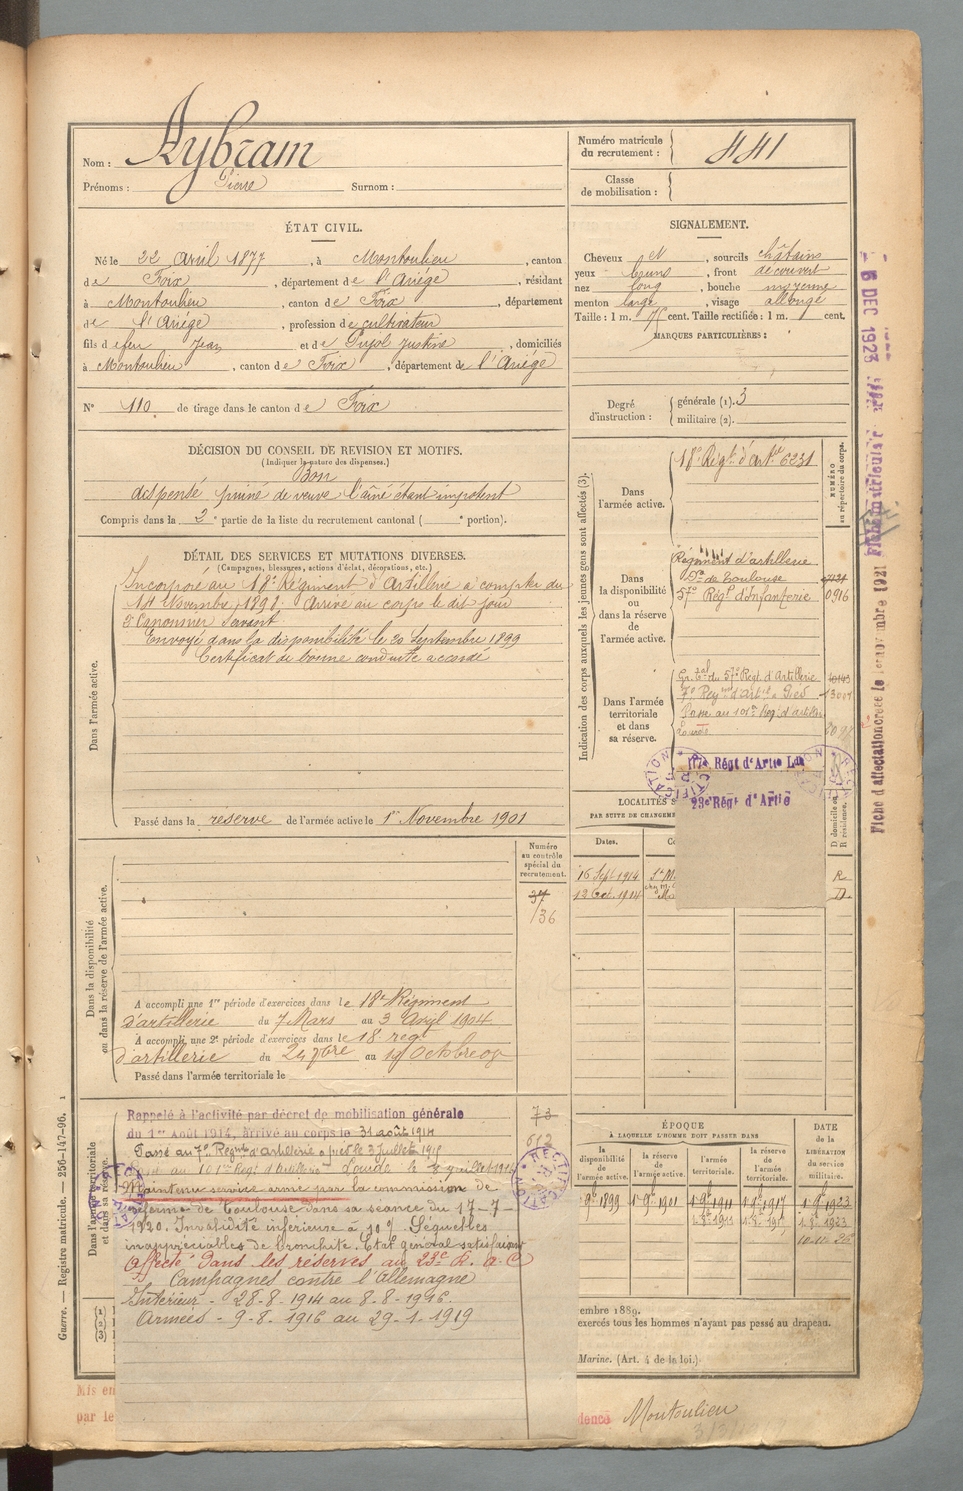 Nom : Aybram
Prénoms : Pierre Surnom :
Numéro matricule du recrutement : 441
Classe de mobilisation :
ÉTAT CIVIL.
Né le 22 Avril 1877, à Montoulieu, canton
de Foix, département de l'Ariége, résidant
à Montoulieu, canton de Foix, département
de l'Ariége, profession de cultivateur
fils de feu Jean et de Pujol Justine, domiciliés
à Montoulieu, canton de Foix, département de l'Ariége
N° 110 de tirage dans le canton de Foix
SIGNALEMENT.
Cheveux et, sourcils châtains
yeux bruns, front découvert
nez long, bouche moyenne
menton large, visage allongé
Taille : 1 m. cent. Taille rectifiée : 1 m. cent.
MARQUES PARTICULIÈRES :
Degré d'instruction : générale (1). 3
militaire (2).
DÉCISION DU CONSEIL DE REVISION ET MOTIFS.
(Indiquer la nature des dispenses.)
Bon
dispensé puiné de veuve l'aîné étant impotent
Compris dans la 2e partie de la liste du recrutement cantonal ( e portion).
DÉTAIL DES SERVICES ET MUTATIONS DIVERSES.
(Campagnes, blessures, actions d'éclat, décorations, etc.)
Dans l'armée active.
Incorporé au 18e Régiment d'Artillerie à compter du
14 Novembre 1898. Arrivé au corps le dit jour
2e Canonnier Servant
Envoyé dans la disponibilité le 20 Septembre 1899
Certificat de bonne conduite accordé
Passé dans la réserve de l'armée active le 1er Novembre 1901
Indication des corps auxquels les jeunes gens sont affectés (3).
NUMÉRO au répertoire du corps.
Dans l'armée active.
18e Régt. d'Artie 6231
Dans la disponibilité ou dans la réserve de l'armée active.
Régiment d'artillerie
de Toulouse
57e Régt d'Infanterie 0916
Dans l'armée territoriale et dans sa réserve.
du 57e Régt. d'Artillerie
Passé au 101e Rég. d'artillerie
Lourde
117e Régt d'Artie Lde
23e Régt d'Artie
RECTIFICATION
LOCALITÉS S
PAR SUITE DE CHANGEME
D domicile ou R résidence.
Dates.
16 Sept 1914 R
12 Oct. 1914 D
Dans la disponibilité ou dans la réserve de l'armée active.
Numéro au contrôle spécial du recrutement.
37
136
A accompli une 1re période d'exercices dans le 18e Régiment
d'artillerie du 7 Mars au 3 Avril 1904
A accompli une 2e période d'exercices dans le 18e reg.
d'artillerie du 24 7bre au
Passé dans l'armée territoriale le
Dans l'armée territoriale et dans sa réserve.
Rappelé à l'activité par décret de mobilisation générale
du 1er Août 1914, arrivé au corps le 31 août 1914
Passé au 7e Régmt d'artillerie à pied le 3 Juillet
au 101e Régt. d'Artillerie Lourde le 8
Maintenu service armé par la commission de
réforme de Toulouse dans sa séance du 17-7-
1920. Invalidité inférieure à 10% Séquelles
inappréciables de bronchite. Etat général satisfaisant
Affecté dans les réserves au 23e R. a. C
Campagnes contre l'Allemagne
Intérieur - 28-8-1914 au 8-8-1916.
Armées - 9-8-1916 au 29-1-1919
73
612
RECTIFICATION
ÉPOQUE
À LAQUELLE L'HOMME DOIT PASSER DANS
la disponibilité de l'armée active.
la réserve de l'armée active.
l'armée territoriale.
la réserve de l'armée territoriale.
DATE de la LIBÉRATION du service militaire.
embre 1889.
exercés tous les hommes n'ayant pas passé au drapeau.
Marine. (Art. 4 de la loi.)
Mis en
par le
dence
Montoulieu
Guerre. — Registre matricule. — 256-147-96. 1
Fiche d'affectation créée le novembre 1921
Fiche matriculaire
6 DEC 1923